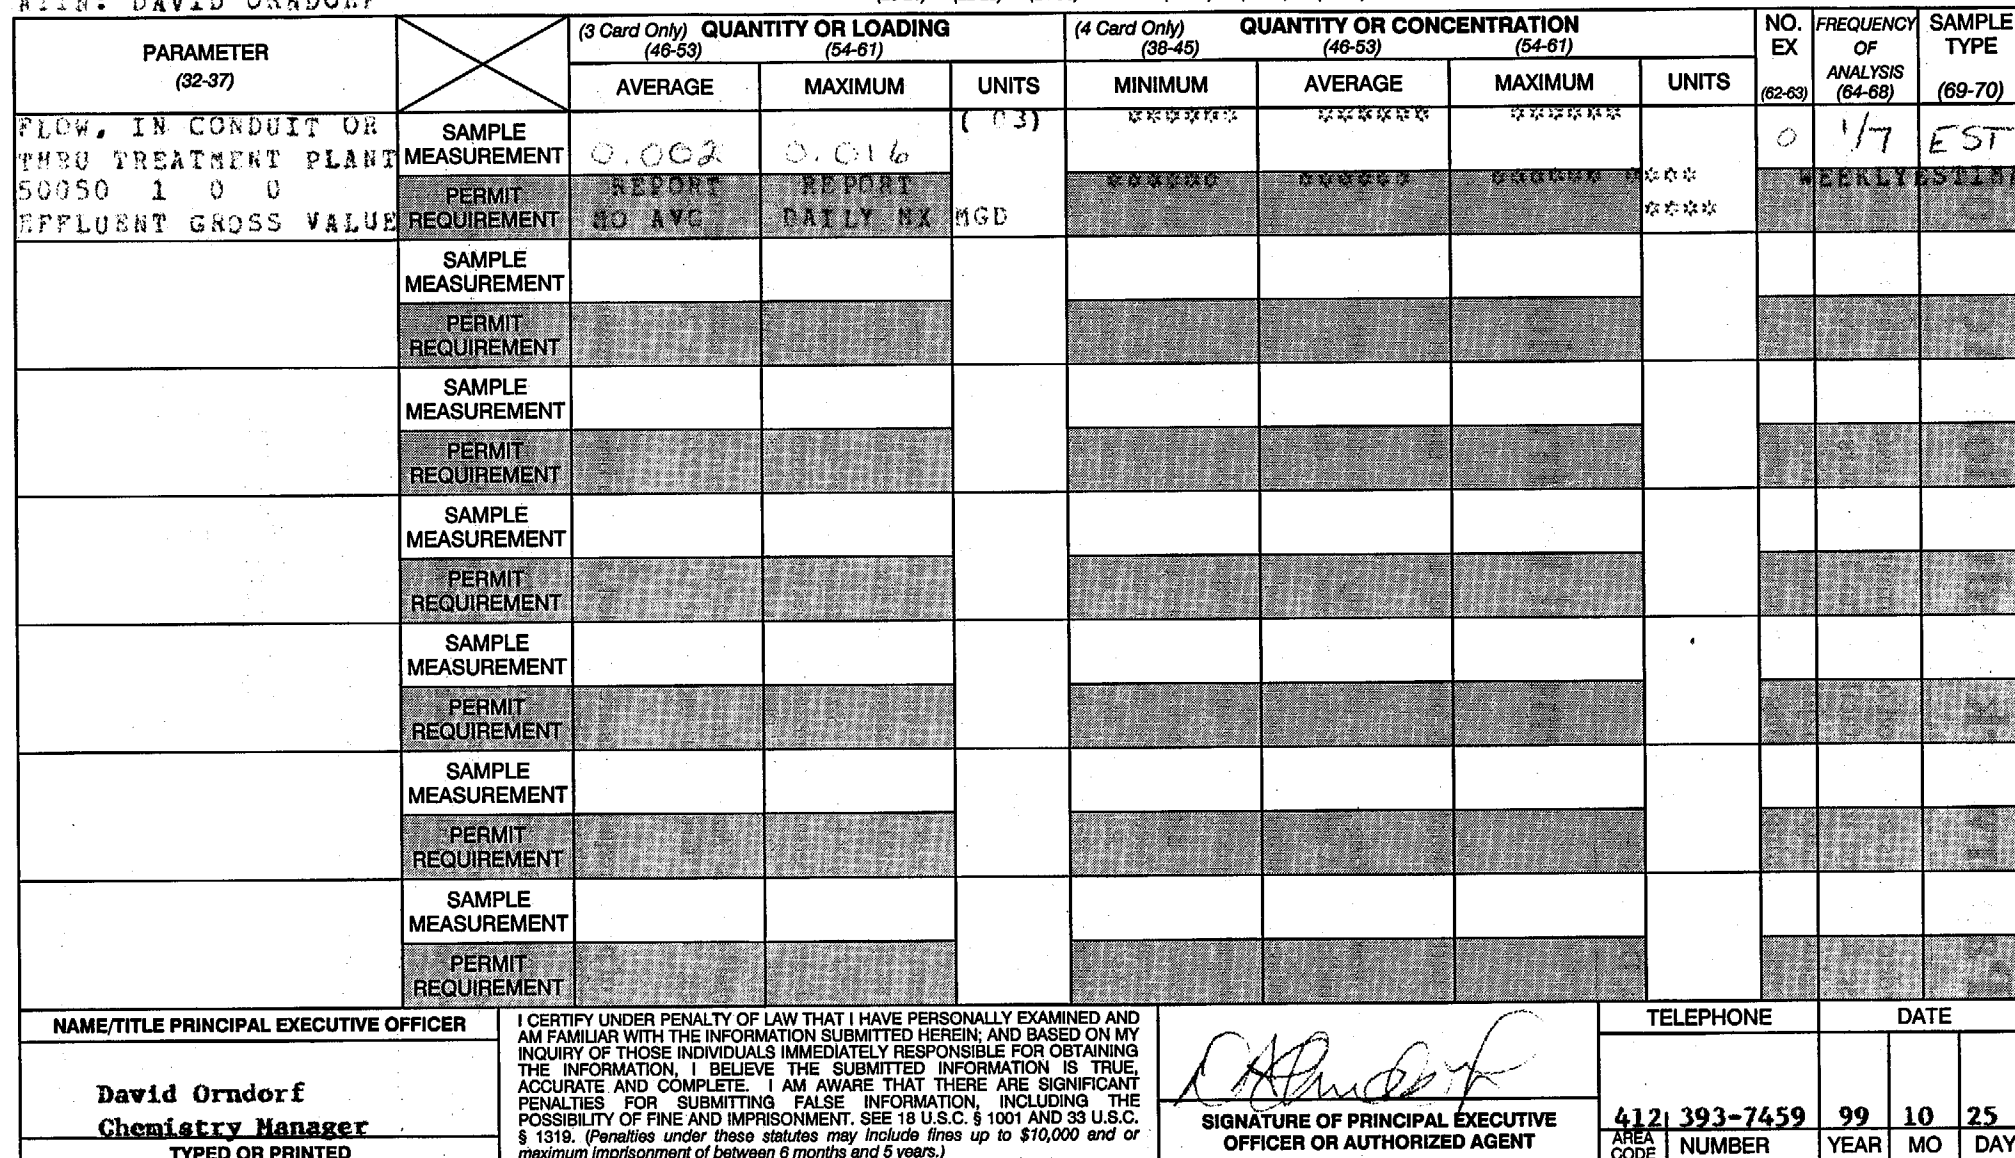 ATTN: DAVID ORNDORF
PARAMETER
(32-37)
(3 Card Only) QUANTITY OR LOADING
(46-53) (54-61)
AVERAGE MAXIMUM UNITS
(4 Card Only) QUANTITY OR CONCENTRATION
(38-45) (46-53) (54-61)
MINIMUM AVERAGE MAXIMUM UNITS
NO.
EX
(62-63)
FREQUENCY
OF
ANALYSIS
(64-68)
SAMPLE
TYPE
(69-70)
FLOW, IN CONDUIT OR
THRU TREATMENT PLANT
50050 1 0 0
EFFLUENT GROSS VALUE
SAMPLE
MEASUREMENT
0.002 0.016 ( 03) ****** ****** ****** 0 1/7 EST
PERMIT
REQUIREMENT
REPORT REPORT ****** ****** ****** **** WEEKLY ESTIMA
MO AVG DAILY MX MGD ****
SAMPLE
MEASUREMENT
PERMIT
REQUIREMENT
SAMPLE
MEASUREMENT
PERMIT
REQUIREMENT
SAMPLE
MEASUREMENT
PERMIT
REQUIREMENT
SAMPLE
MEASUREMENT
PERMIT
REQUIREMENT
SAMPLE
MEASUREMENT
PERMIT
REQUIREMENT
SAMPLE
MEASUREMENT
PERMIT
REQUIREMENT
NAME/TITLE PRINCIPAL EXECUTIVE OFFICER
David Orndorf
Chemistry Manager
TYPED OR PRINTED
I CERTIFY UNDER PENALTY OF LAW THAT I HAVE PERSONALLY EXAMINED AND
AM FAMILIAR WITH THE INFORMATION SUBMITTED HEREIN; AND BASED ON MY
INQUIRY OF THOSE INDIVIDUALS IMMEDIATELY RESPONSIBLE FOR OBTAINING
THE INFORMATION, I BELIEVE THE SUBMITTED INFORMATION IS TRUE,
ACCURATE AND COMPLETE. I AM AWARE THAT THERE ARE SIGNIFICANT
PENALTIES FOR SUBMITTING FALSE INFORMATION, INCLUDING THE
POSSIBILITY OF FINE AND IMPRISONMENT. SEE 18 U.S.C. § 1001 AND 33 U.S.C.
§ 1319. (Penalties under these statutes may include fines up to $10,000 and or
maximum imprisonment of between 6 months and 5 years.)
SIGNATURE OF PRINCIPAL EXECUTIVE
OFFICER OR AUTHORIZED AGENT
TELEPHONE
412 393-7459
AREA
CODE
NUMBER
DATE
99 10 25
YEAR MO DAY